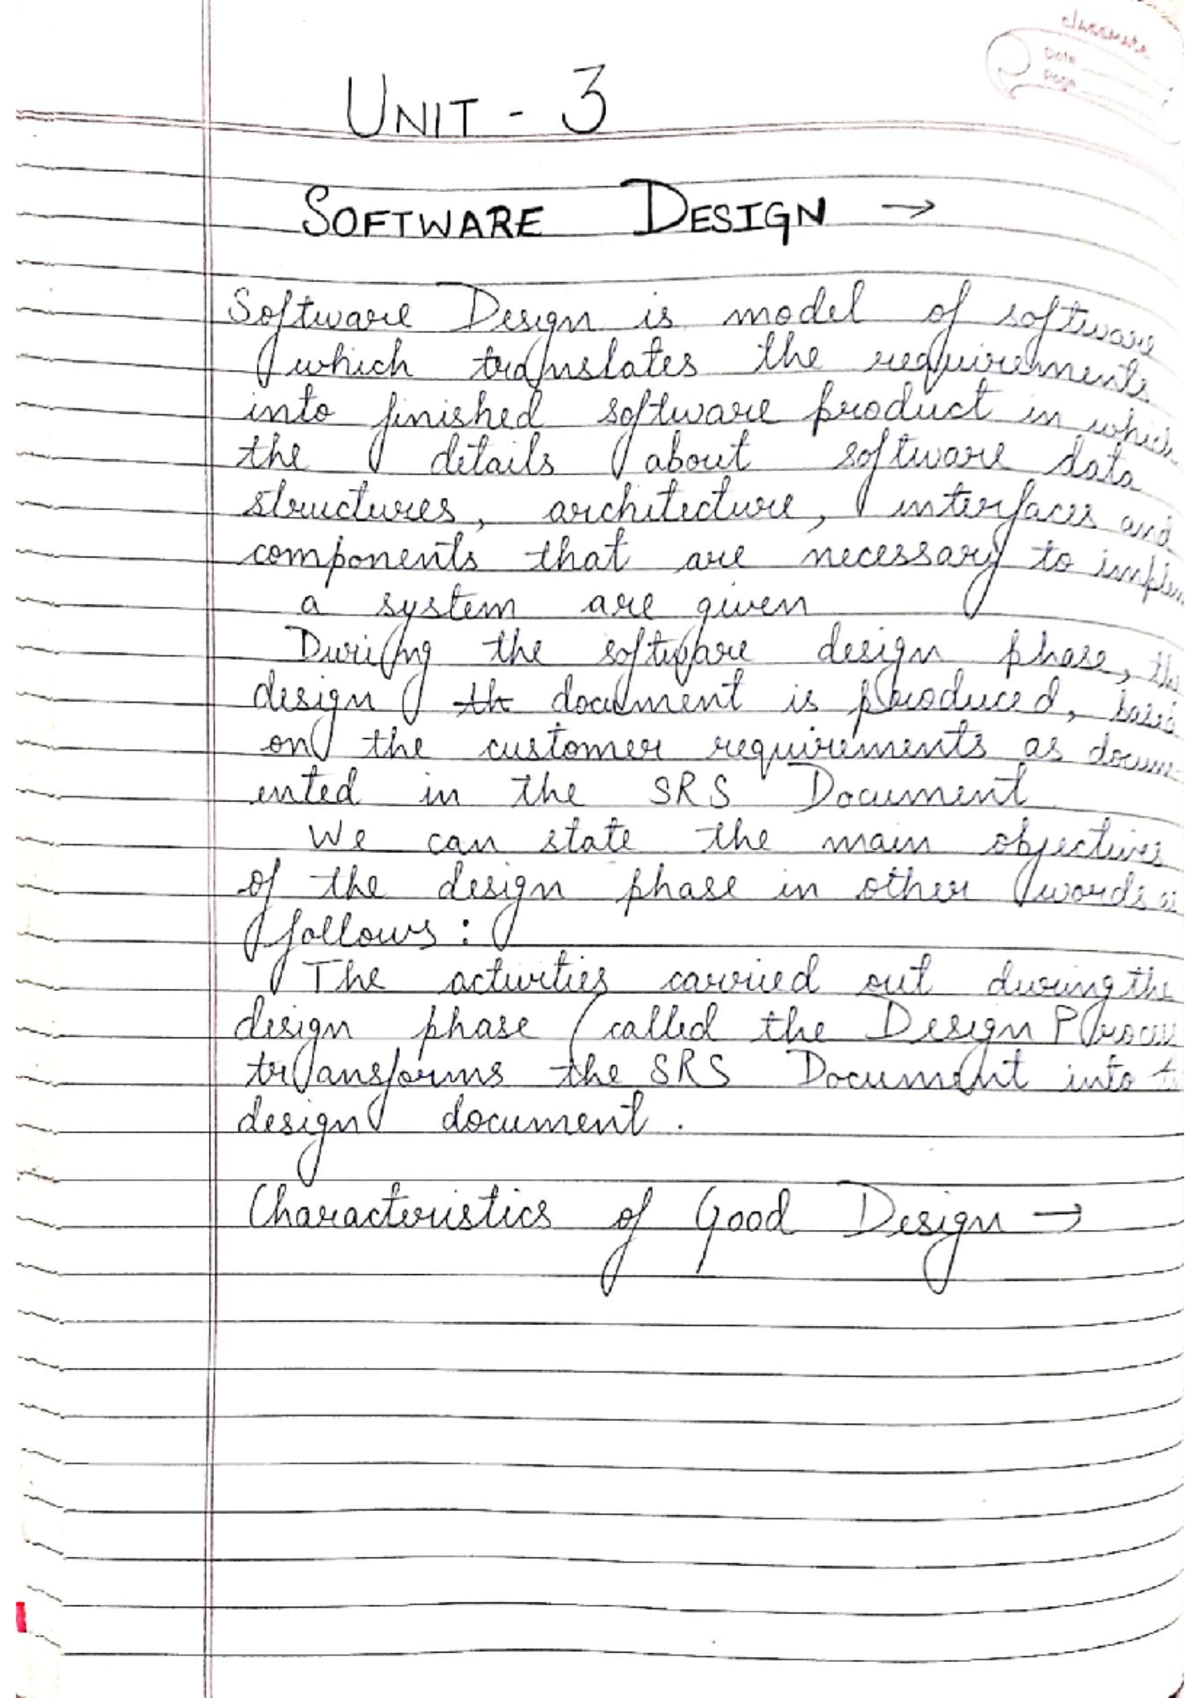 classmate
Date
Page
UNIT - 3
SOFTWARE DESIGN →
Software Design is model of software
which translates the requirements
into finished software product in which
the details about software data
structures, architecture, interfaces and
components that are necessary to implem
a system are given
During the software design phase, the
design document is produced, based
on the customer requirements as docum-
ented in the SRS Document
We can state the main objectives
of the design phase in other words as
follows:
The activities carried out during the
design phase (called the Design Process
transforms the SRS Document into
design document.
Characteristics of Good Design →